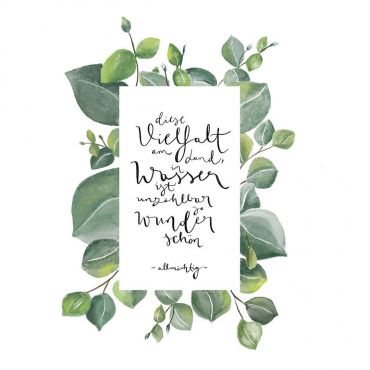 diese
Vielfalt
am Land,
in
Wasser
ist
unzählbar
so
Wunder
schön
- allmächtig -